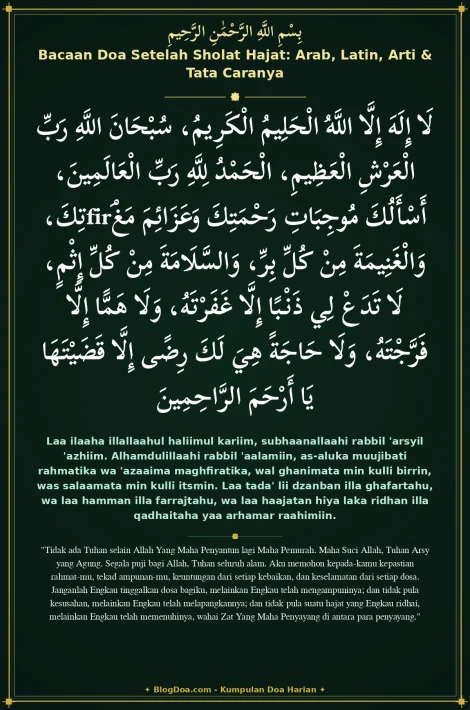 بِسْمِ اللَّهِ الرَّحْمَٰنِ الرَّحِيمِ
Bacaan Doa Setelah Sholat Hajat: Arab, Latin, Arti &
Tata Caranya
لَا إِلَهَ إِلَّا اللَّهُ الْحَلِيمُ الْكَرِيمُ، سُبْحَانَ اللَّهِ رَبِّ
الْعَرْشِ الْعَظِيمِ، الْحَمْدُ لِلَّهِ رَبِّ الْعَالَمِينَ،
أَسْأَلُكَ مُوجِبَاتِ رَحْمَتِكَ وَعَزَائِمَ مَغْfirَتِكَ،
وَالْغَنِيمَةَ مِنْ كُلِّ بِرٍّ، وَالسَّلَامَةَ مِنْ كُلِّ إِثْمٍ،
لَا تَدَعْ لِي ذَنْبًا إِلَّا غَفَرْتَهُ، وَلَا هَمًّا إِلَّا
فَرَّجْتَهُ، وَلَا حَاجَةً هِيَ لَكَ رِضًى إِلَّا قَضَيْتَهَا
يَا أَرْحَمَ الرَّاحِمِينَ
Laa ilaaha illallaahul haliimul kariim, subhaanallaahi rabbil 'arsyil
'azhiim. Alhamdulillaahi rabbil 'aalamiin, as-aluka muujibati
rahmatika wa 'azaaima maghfiratika, wal ghanimata min kulli birrin,
was salaamata min kulli itsmin. Laa tada' lii dzanban illa ghafartahu,
wa laa hamman illa farrajtahu, wa laa haajatan hiya laka ridhan illa
qadhaitaha yaa arhamar raahimiin.
"Tidak ada Tuhan selain Allah Yang Maha Penyantun lagi Maha Pemurah. Maha Suci Allah, Tuhan Arsy
yang Agung. Segala puji bagi Allah, Tuhan seluruh alam. Aku memohon kepada-kamu kepastian
rahmat-mu, tekad ampunan-mu, keuntungan dari setiap kebaikan, dan keselamatan dari setiap dosa.
Janganlah Engkau tinggalkan dosa bagiku, melainkan Engkau telah mengampuninya; dan tidak pula
kesusahan, melainkan Engkau telah melapangkannya; dan tidak pula suatu hajat yang Engkau ridhai,
melainkan Engkau telah memenuhinya, wahai Zat Yang Maha Penyayang di antara para penyayang."
✦ BlogDoa.com - Kumpulan Doa Harian ✦